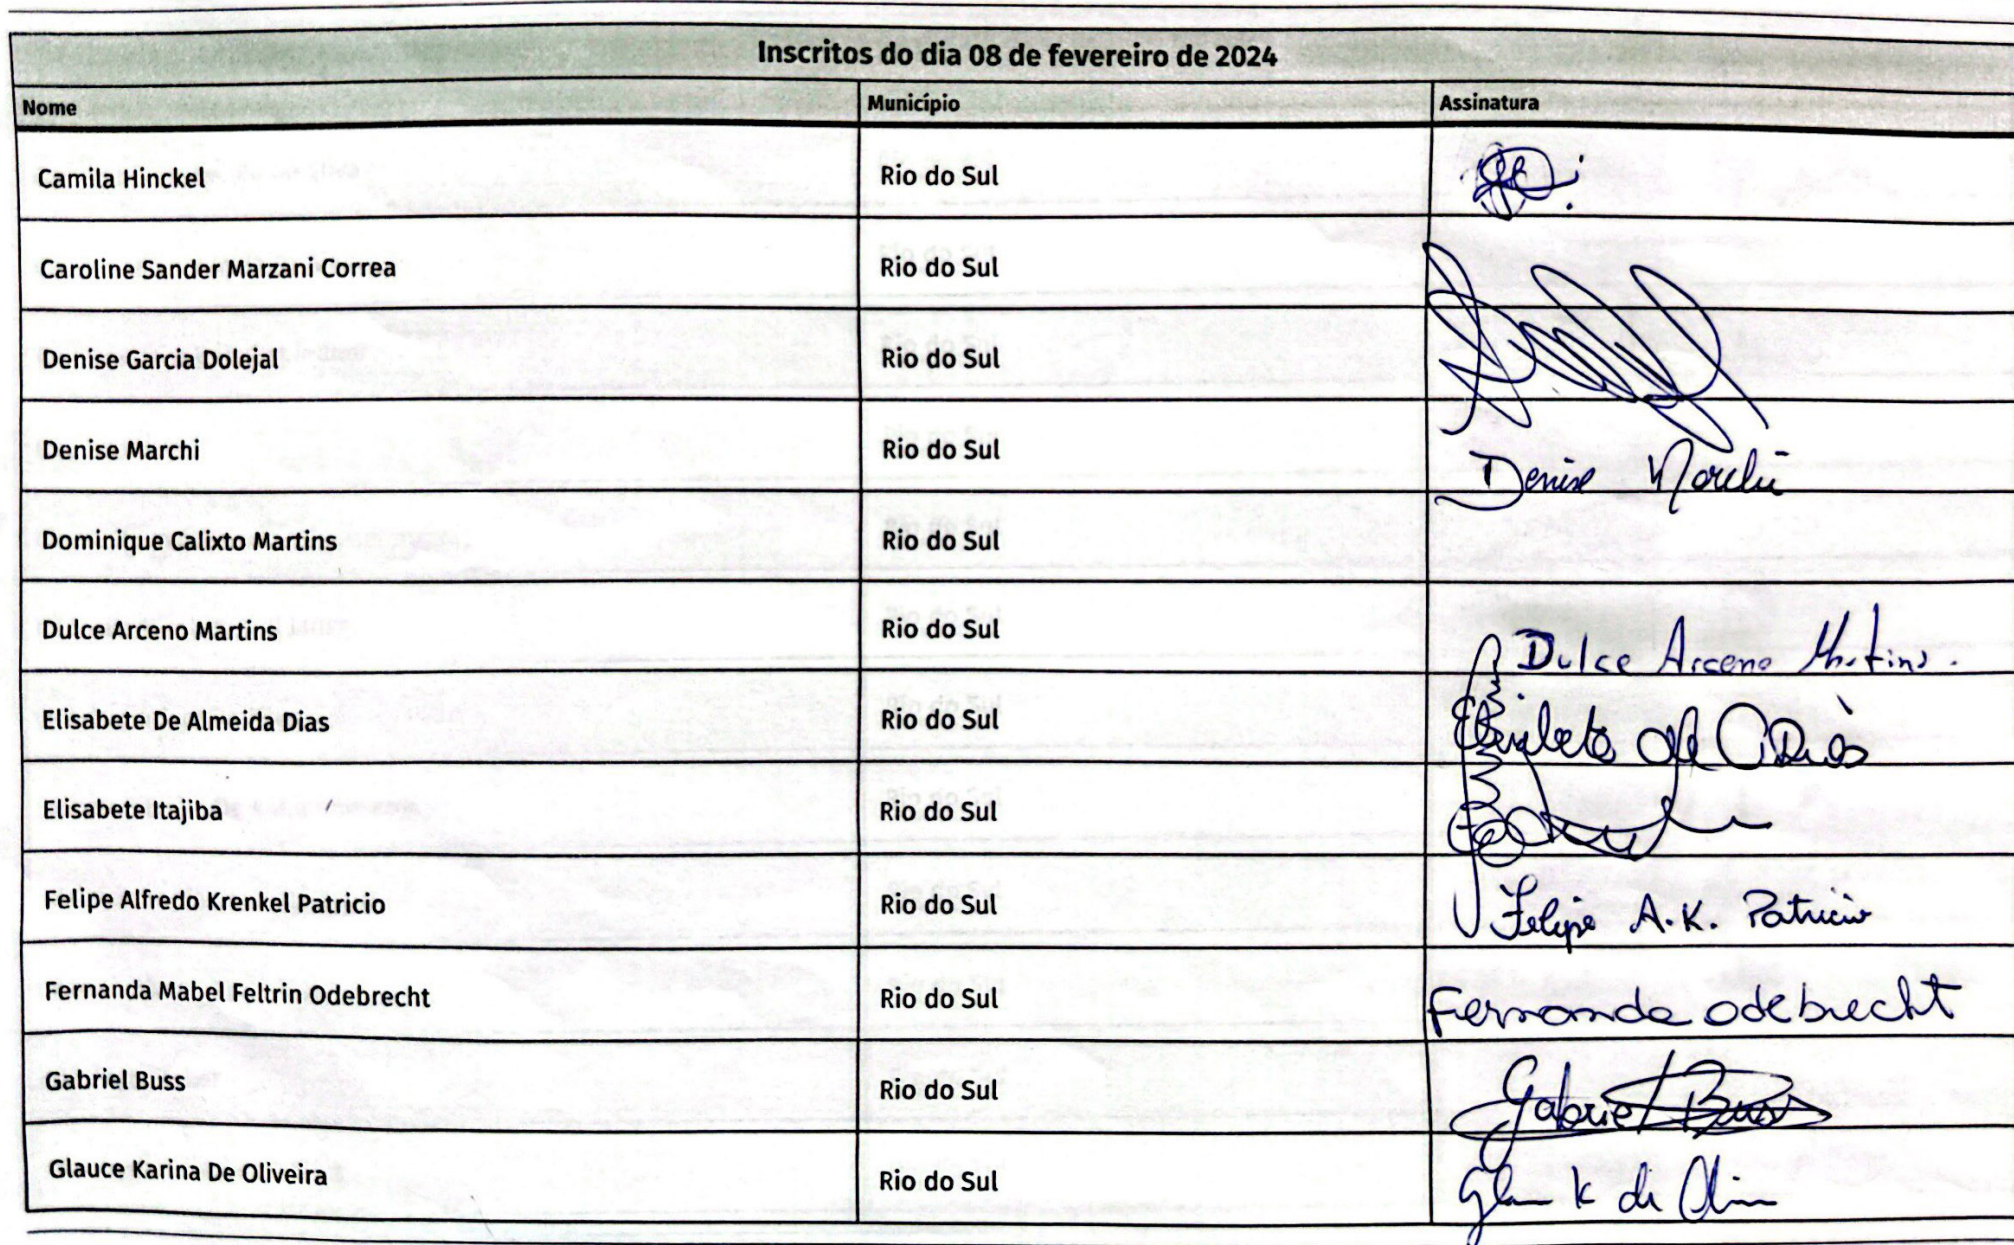 Inscritos do dia 08 de fevereiro de 2024
Nome Município Assinatura
Camila Hinckel Rio do Sul
Caroline Sander Marzani Correa Rio do Sul
Denise Garcia Dolejal Rio do Sul
Denise Marchi Rio do Sul Denise Marchi
Dominique Calixto Martins Rio do Sul
Dulce Arceno Martins Rio do Sul Dulce Arceno Martins.
Elisabete De Almeida Dias Rio do Sul Elisabete de A Dias
Elisabete Itajiba Rio do Sul
Felipe Alfredo Krenkel Patricio Rio do Sul Felipe A.K. Patricio
Fernanda Mabel Feltrin Odebrecht Rio do Sul Fernanda Odebrecht
Gabriel Buss Rio do Sul Gabriel Buss
Glauce Karina De Oliveira Rio do Sul K de